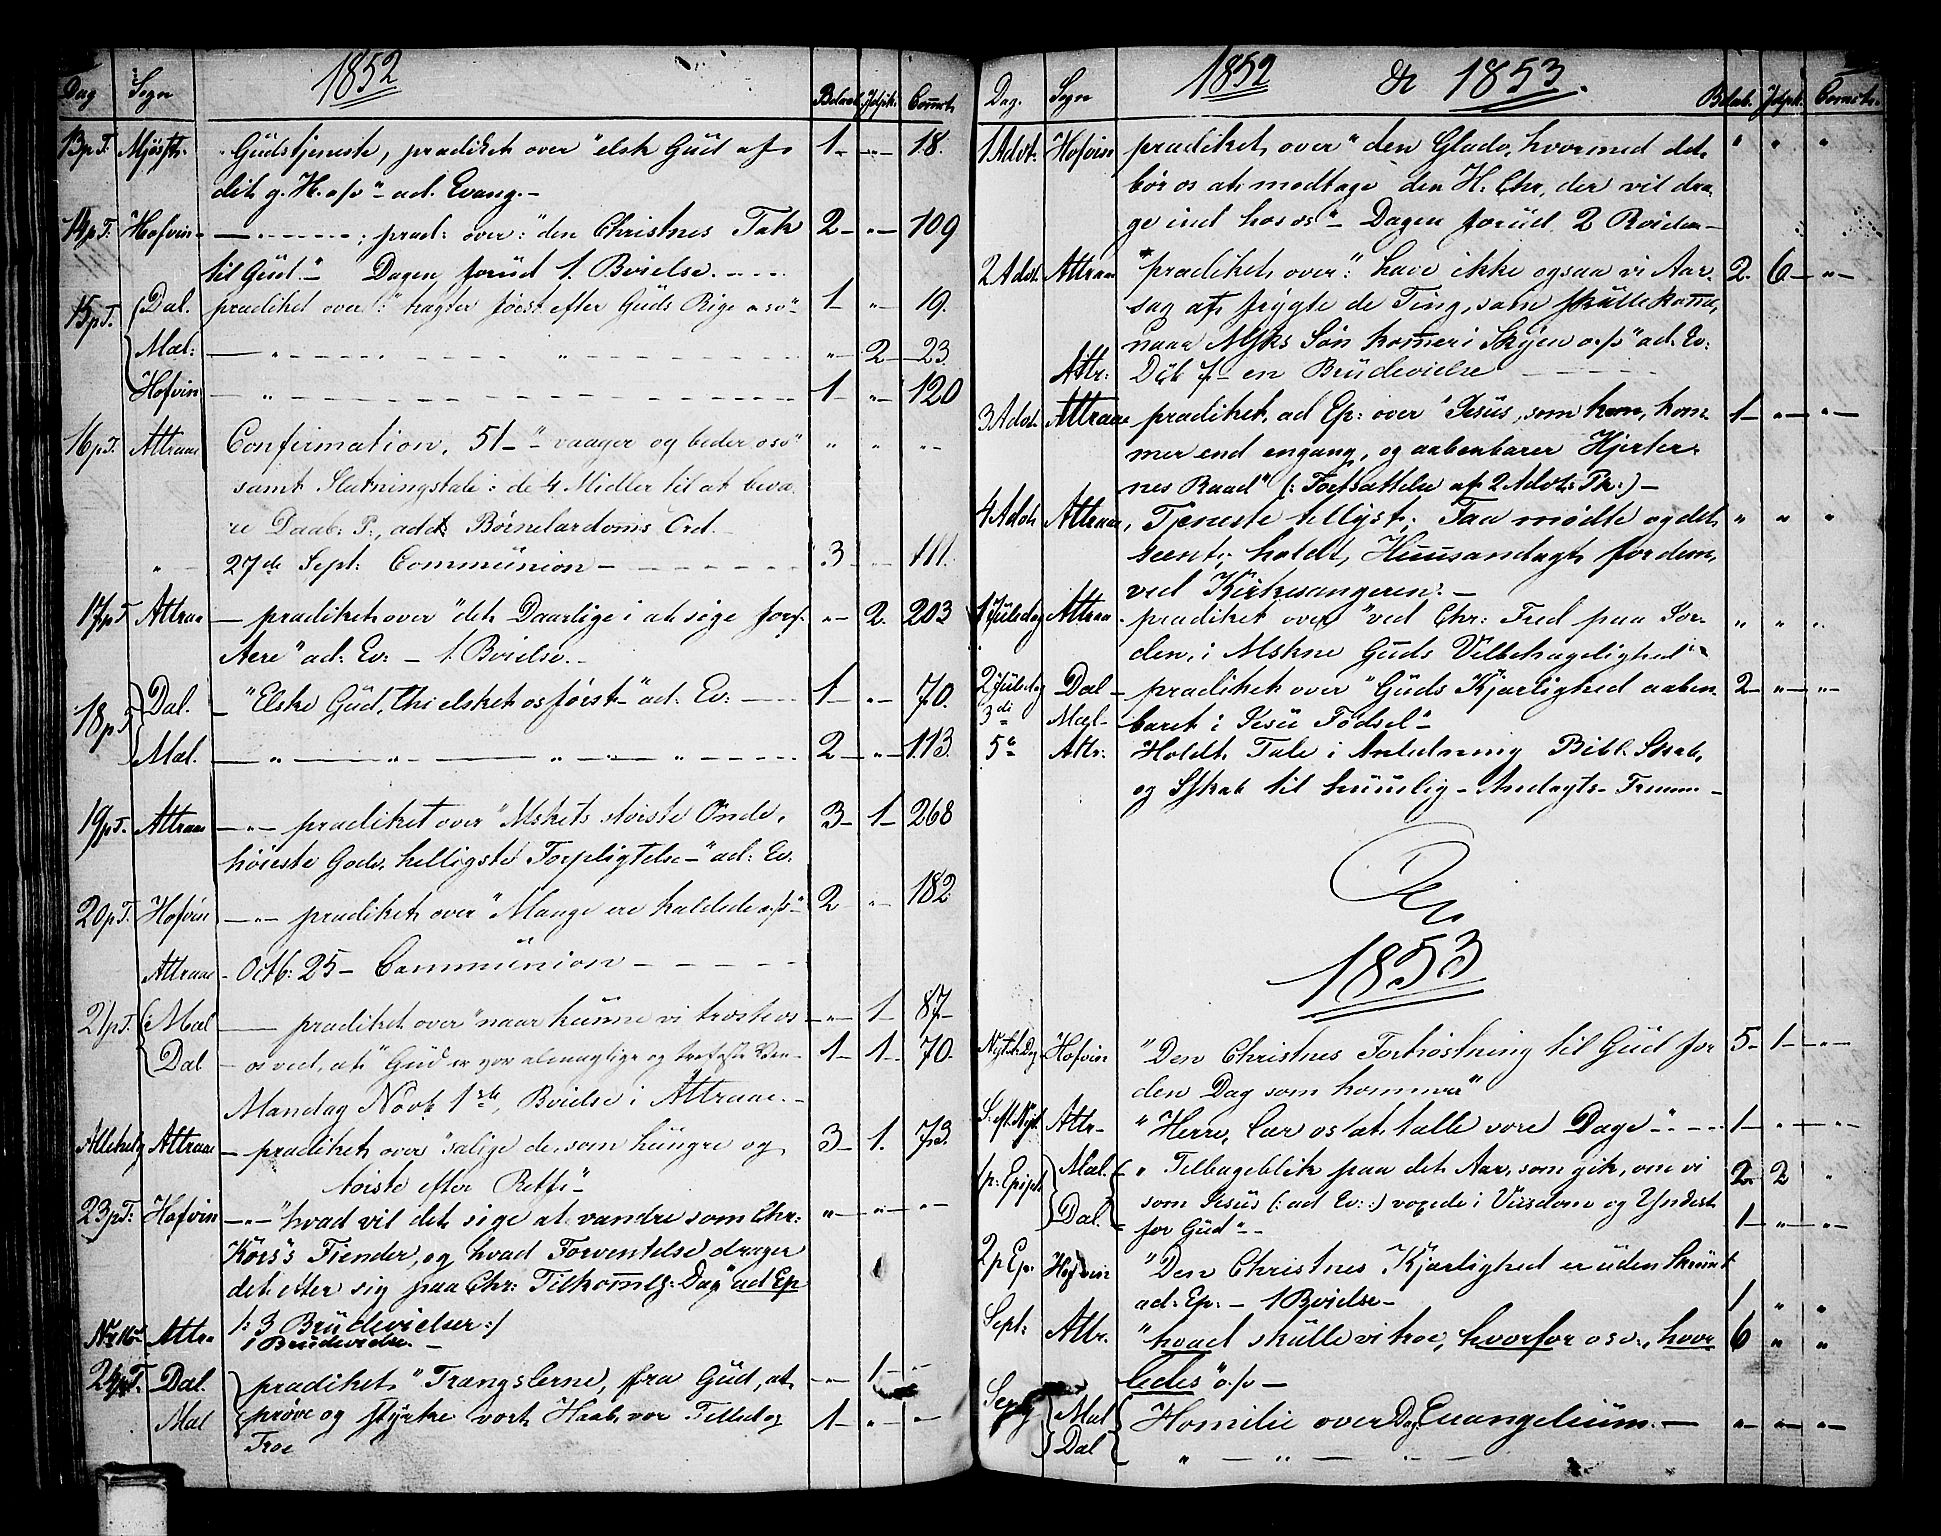 1852
Dag Sogn Betaab. Jdpk: Com̄nt.
13pT. Mjøsstr. Gudstjeneste, prædiket over "elsk Gud af 1 — " — 18.
dit g. H. o/s" ad. Evang. —
14pT. Hofvin — " — ; præd: over: "den Christnes Tak 2 — " — 109
til Gud." Dagen forud 1. Bvielse. — — —
15pT. Dal. prædiket over: "tragter først efter Guds Rige osv" 1 — " — 19.
Mæl: — " — " — 2 — 23
Hofvin — " — 1 — " — 120
16pT. Attraae Confirmation, 51 — "vaager og beder osv" " " "
samt Slutningstale: de 4 Midler til at beva-
re Daab: P., Børnelærdoms Ord.
" 27de Sept: Communion — 3 — " — 111.
17pT Attraae — prædiket over "det Daarlige i at sige forf. " — 2. 203
Aere" ad: Ev: — 1. Bvielse. —
18pT Dal. — "Elske Gud, thi elsket os først" ad: Ev: — 1 — " — 70.
Mæl. — " — " — " — 2 — " — 113.
19pT. Attraae — " — prædiket over "Mskets største Onde, 3 — 1 — 268
høieste Gode, helligste Forpligtelse —" ad: Ev.
20pT. Hofvin — " — prædiket over "Mange ere kaldede o/s" — 2 " 182
Attraae — Octb: 25 — Communion — — — —
21pT. Mæl — prædiket over "naar kunne vi trøste os — " — 1 — 87 —
Dal — os ved, at "Gud er vor almægtige og Ven — 1 — 1 — 70.
Mandag Novb 1ste, Bvielse i Attraae. —
Allehelg Attraae — prædiket over "salige de, som hungre og 3 — 1. 73.
tørste efter Retf:" —
23pT: Hofvin — " — "hvad vil det sige at vandre som Chr: " — " — "
Kors's Fiender, og hvad Forventelse drager
det efter sig paa Chr: Tilkom̄els: Dag" ad Ep
/: 3 Brudevielser :/
Nv 16d Attr. 1 Brudevielse. —
24pT. Dal. prædiket "Trængslerne, fra Gud, at " — 1 — "
Mæl prøve og styrke vort Haab, vor Tillid og 1 — " — "
Troe
1852 & 1853.
Dag. Sogn Betaab. Jdpk. Com̄nts.
1 Advt: Hofvin prædiket over "den Glæde, hvormed det " " "
bør os at modtage den H. Chr, der vil dra-
ge ind hos os" — Dagen forud 2 Bvielser —
2 Advt. Attraae "prædiket over": have ikke ogsaa vi Aar- 2. 6 — "
sag at frygte de Ting, som skulle kom̄e,
naar Msks Søn kom̄er i Skyen o/s" ad: Ev:
Attr: en Brudevielse — — —
3 Advt. Attraae prædiket, ad Ep: over "Jesus, som kom, kom- 1 — " — "
mer end engang, og aabenbarer Hjerter-
nes Raad" (: Fortsættelse af 2 Advt: Pr:) —
4 Advt Attraae, Tjeneste tillyst; Faa mødte og det " " "
seent; holdt Huusandagt for dem,
ved Kirkesangeren: —
1 Juledag Attraae. prædiket over "ved Chr: Fred paa Jor- " " "
den, i Mskne Guds Velbehagelighed" —
2 Juledag Dal — prædiket over "Guds Kjærlighed aaben- 2 — " — "
3di Mæl — baret i Jesu Fødsel" —
5te Attr: Holdt Tale i Anledning Bibl. Skab,
og Sskab til huuslig — Andagts — Fremme —
1853
Nytrs Dag Hofvin "Den Christnes Fortrøstning til Gud for 5 — 1 — "
den Dag som kommer"
S: eft. Nyt. Attr. "Herre, lær os at tælle vore Dage" — 1 — " — "
1p: Epiph Mæl. "Tilbageblik paa det Aar, som gik, om vi 2. 2 "
Dal. som Jesus (: ad Ev:) voxede i Viisdom og Yndest 1 — " — "
for Gud" —
2 p Ep: Hofvin "Den Christnes Kjærlighed er uden Skrømt
ad: Ep: — 1 Bvielse — 1 " "
Sept: Attr. "hvad skulle vi troe, hvorfor osv., hvor 6 " "
ledes" o/s —
Mæl Homilie over Dag. Evangelium. — " — " — "
Dal " — " —